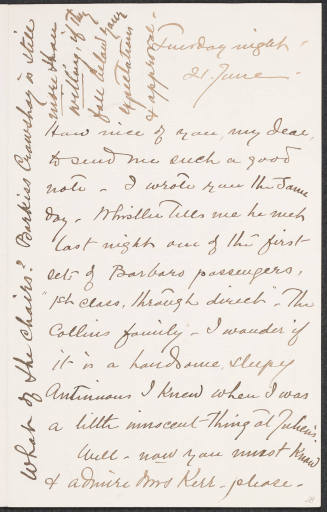 Tuesday night -
21. June -
How nice of you, my dear,
to send me such a good
note - I wrote you the same
day. Whistler tells me he met
last night one of the first
set of Barbaro passengers,
"1st class, through direct" - The
Collins family - I wonder if
it is a handsome, sleepy
Antinous I knew when I was
a little innocent thing at Julien's.
Well - now you must know
& admire Mrs Kerr - please -
What of the chairs? Barkiss Crawshay is still
more than
willing, if they
fall below your
expectations
& approval -